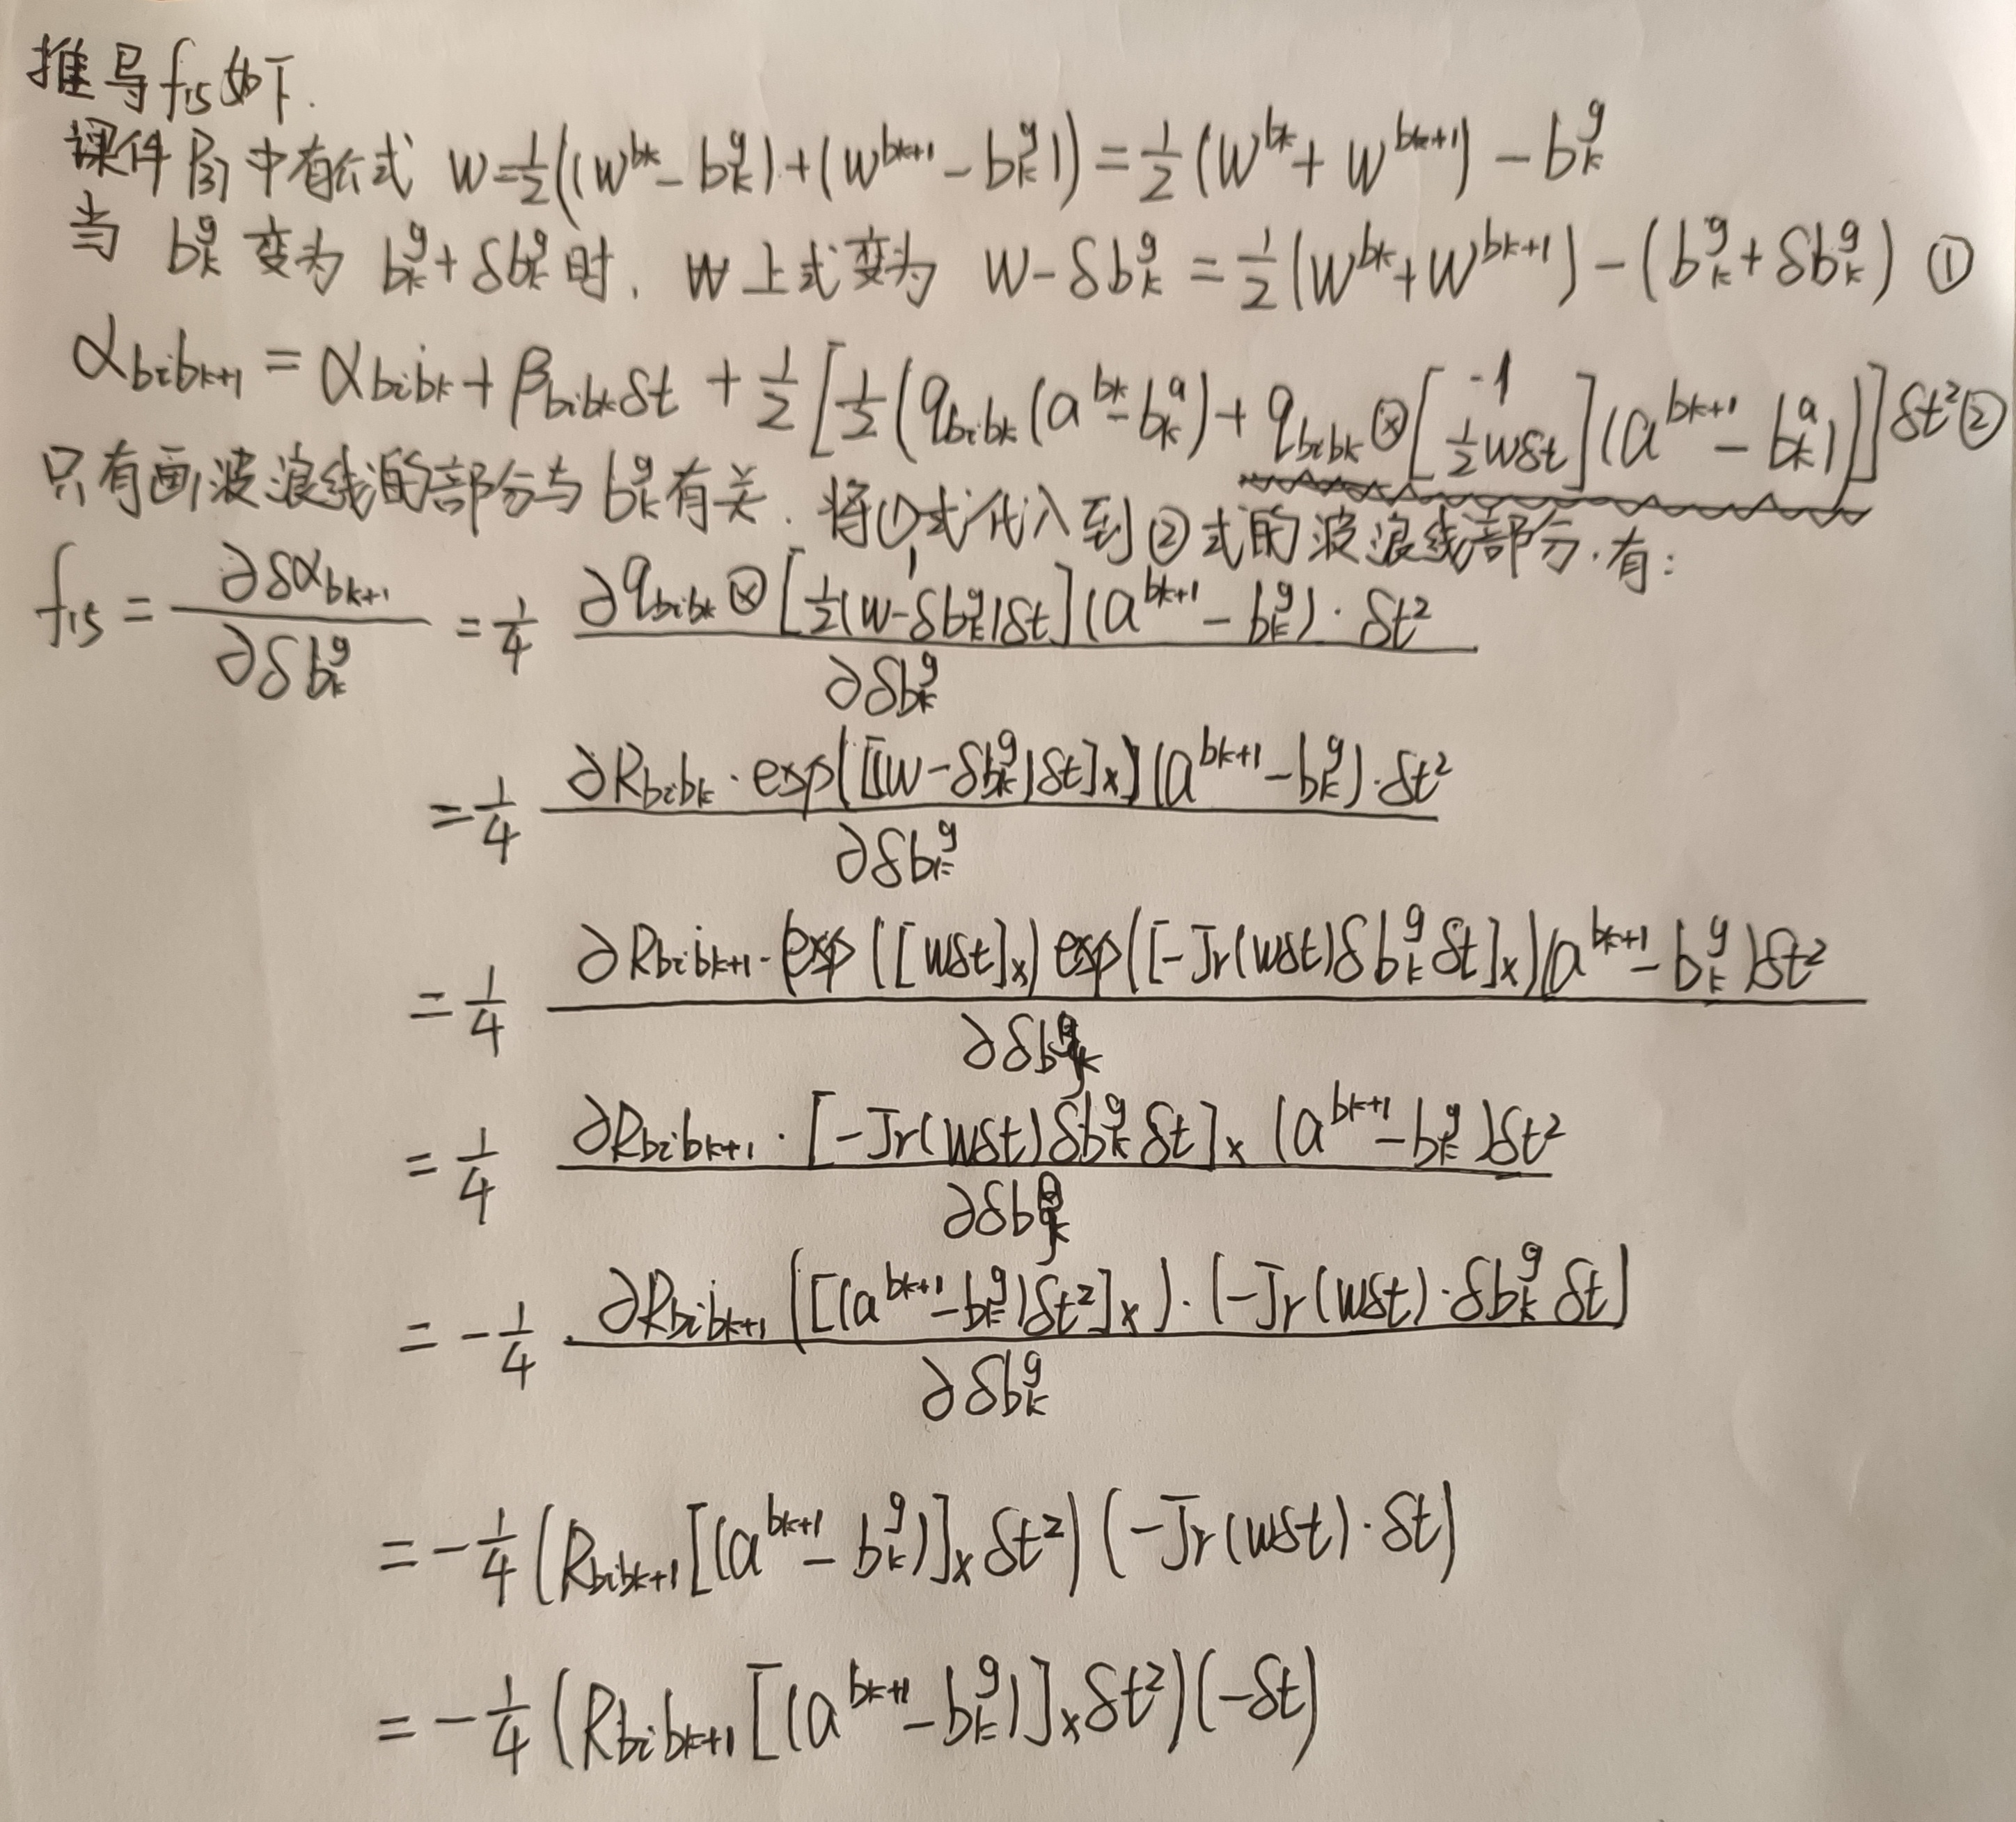 推导f₁₅如下.
课件P31中有公式 w=½((w^{bk}-b_k^g)+(w^{bk+1}-b_k^g))=½(w^{bk}+w^{bk+1})-b_k^g
当 b_k^g 变为 b_k^g+δb_k^g时. 上式变为 w-δb_k^g=½(w^{bk}+w^{bk+1})-(b_k^g+δb_k^g) ①
α_{bibk+1}=α_{bibk}+β_{bibk}δt+½[½(q_{bibk}(a^{bk}-b_k^a)+q_{bibk}⊗[1; ½wδt](a^{bk+1}-b_k^a))]δt² ②
只有画波浪线的部分与b_k^g有关. 将①式代入到②式的波浪线部分.有:
f₁₅=∂δα_{bk+1}/∂δb_k^g=¼ ∂q_{bibk}⊗[1; ½(w-δb_k^g)δt](a^{bk+1}-b_k^g)·δt²/∂δb_k^g
=¼ ∂R_{bibk}·exp([(w-δb_k^g)δt]ₓ)(a^{bk+1}-b_k^g)·δt²/∂δb_k^g
=¼ ∂R_{bibk+1}·exp([wδt]ₓ)exp([-Jr(wδt)δb_k^gδt]ₓ)(a^{bk+1}-b_k^g)δt²/∂δb_k^g
=¼ ∂R_{bibk+1}·[-Jr(wδt)δb_k^gδt]ₓ(a^{bk+1}-b_k^g)δt²/∂δb_k^g
=-¼ ∂R_{bibk+1}([(a^{bk+1}-b_k^g)δt²]ₓ)·(-Jr(wδt)·δb_k^gδt)/∂δb_k^g
=-¼(R_{bibk+1}[(a^{bk+1}-b_k^g)]ₓδt²)(-Jr(wδt)·δt)
=-¼(R_{bibk+1}[(a^{bk+1}-b_k^g)]ₓδt²)(-δt)